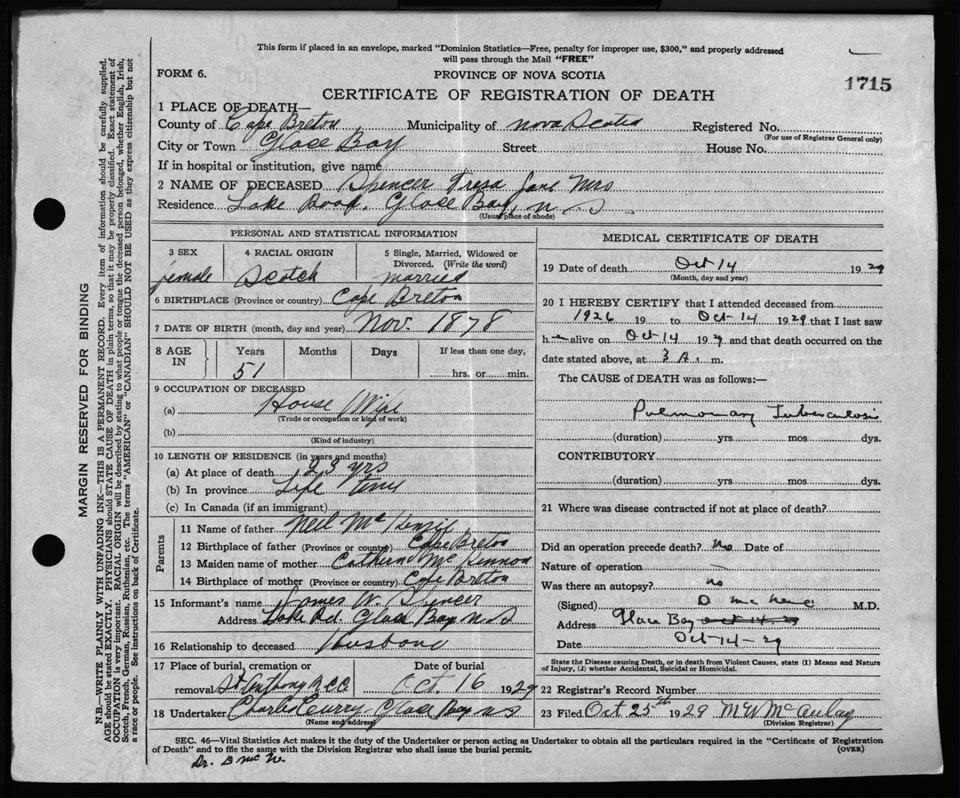 This form if placed in an envelope, marked "Dominion Statistics—Free, penalty for improper use, $300," and properly addressed
will pass through the Mail "FREE"
FORM 6.
PROVINCE OF NOVA SCOTIA
1715
CERTIFICATE OF REGISTRATION OF DEATH
1 PLACE OF DEATH—
County of Cape Breton Municipality of Nova Scotia Registered No.
(For use of Registrar General only)
City or Town Glace Bay Street House No.
If in hospital or institution, give name
2 NAME OF DECEASED Spencer Tresa Jane Mrs
Residence Lake Road. Glace Bay, N. S
(Usual place of abode)
PERSONAL AND STATISTICAL INFORMATION
3 SEX
4 RACIAL ORIGIN
5 Single, Married, Widowed or
Divorced. (Write the word)
female Scotch married
6 BIRTHPLACE (Province or country) Cape Breton
7 DATE OF BIRTH (month, day and year) Nov. 1878
8 AGE IN
Years Months Days If less than one day,
51
hrs. or min.
9 OCCUPATION OF DECEASED
(a) House Wife
(Trade or occupation or kind of work)
(b)
(Kind of industry)
10 LENGTH OF RESIDENCE (in years and months)
(a) At place of death 23 yrs
(b) In province Life Time
(c) In Canada (if an immigrant)
Parents
11 Name of father Neil McKenzie
12 Birthplace of father (Province or country) Cape Breton
13 Maiden name of mother Cathern McKinnon
14 Birthplace of mother (Province or country) Cape Breton
15 Informant's name James W. Spencer
Address Lake Rd. Glace Bay N.S
16 Relationship to deceased Husband
17 Place of burial, cremation or
removal St Anthony R.C.C
Date of burial
Oct. 16 1929
18 Undertaker Charles Curry Glace Bay N S
(Name and address)
MEDICAL CERTIFICATE OF DEATH
19 Date of death Oct 14 1929
(Month, day and year)
20 I HEREBY CERTIFY that I attended deceased from
1926 19 to Oct-14 1929 that I last saw
her alive on Oct-14 1929 and that death occurred on the
date stated above, at 3 A. m.
The CAUSE of DEATH was as follows:—
Pulmonary Tuberculosis
(duration) yrs mos dys.
CONTRIBUTORY
(duration) yrs mos dys.
21 Where was disease contracted if not at place of death?
Did an operation precede death? No Date of
Nature of operation —
Was there an autopsy? no
(Signed) D M.D.
Address Glace Bay Oct 14-29
Date Oct-14-29
State the Disease causing Death, or in death from Violent Causes, state (1) Means and Nature
of Injury, (2) whether Accidental, Suicidal or Homicidal.
22 Registrar's Record Number
23 Filed Oct 25th 1929 M W McAulay
(Division Registrar)
SEC. 46—Vital Statistics Act makes it the duty of the Undertaker or person acting as Undertaker to obtain all the particulars required in the "Certificate of Registration
of Death" and to file the same with the Division Registrar who shall issue the burial permit.
(OVER)
Dr. D
MARGIN RESERVED FOR BINDING
N.B.—WRITE PLAINLY WITH UNFADING INK—THIS IS A PERMANENT RECORD. Every item of information should be carefully supplied.
AGE should be stated EXACTLY. PHYSICIANS should STATE CAUSE OF DEATH in plain terms, so that it may be properly classified. Exact statement of
OCCUPATION is very important. RACIAL ORIGIN will be described by stating to what people or tongue the deceased person belonged, whether English, Irish,
Scotch, French, German, Russian, Ruthenian, etc. The terms "AMERICAN" or "CANADIAN" SHOULD NOT BE USED as they express citizenship but not
a race or people. See instructions on back of Certificate.